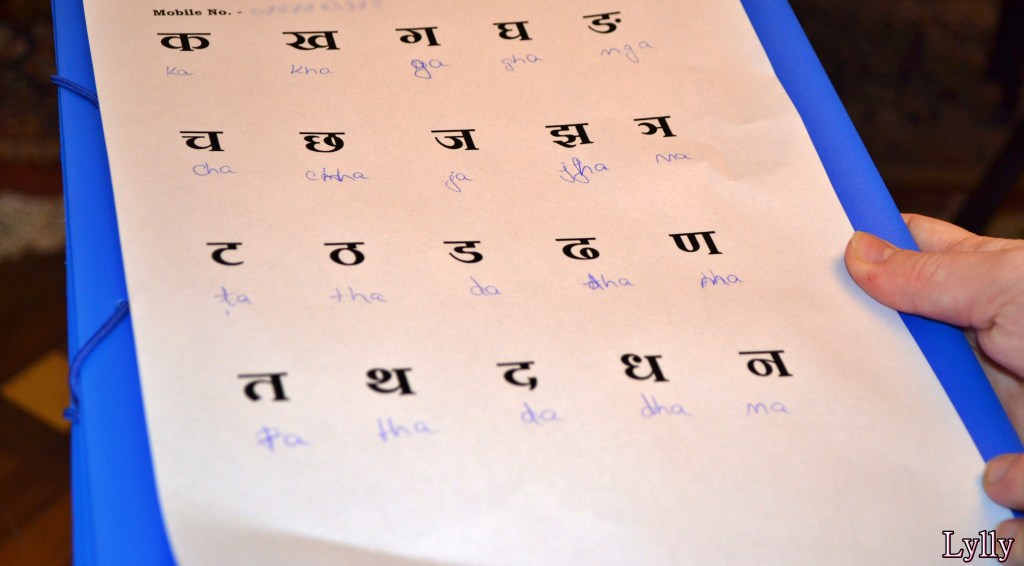 Mobile No. -
क ख ग घ ङ
ka kha ga gha nga
च छ ज झ ञ
cha chha ja jha na
ट ठ ड ढ ण
ṭa tha da dha nha
त थ द ध न
ta tha da dha na
Lylly